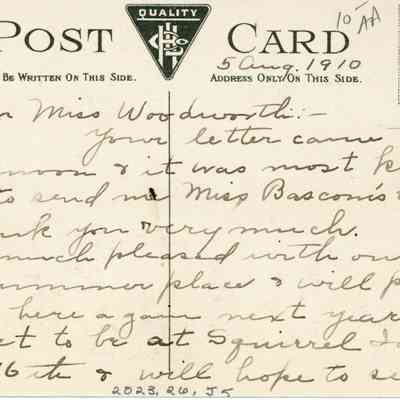 POST CARD
QUALITY
10- AA
5 Aug. 1910
BE WRITTEN ON THIS SIDE.
ADDRESS ONLY ON THIS SIDE.
Miss Woodworth:-
Your letter came
noon & it was most
to send me Miss Bascom's
you very much.
much pleased with our
summer place & will
here again next year
to be at Squirrel
16th & will hope to
2023.26.J5